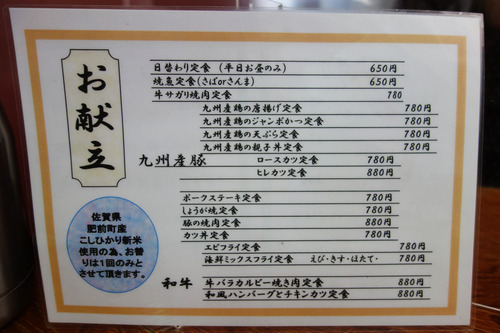 お献立
日替わり定食（平日お昼のみ） 650円
焼魚定食(さばorさんま) 650円
牛サガリ焼肉定食 780
九州産鶏の唐揚げ定食 780円
九州産鶏のジャンボかつ定食 780円
九州産鶏の天ぷら定食 780円
九州産鶏の親子丼定食 780円
九州産豚 ロースカツ定食 780円
ヒレカツ定食 880円
ポークステーキ定食 780円
しょうが焼定食 780円
豚の焼肉定食 880円
カツ丼定食 780円
エビフライ定食 780円
海鮮ミックスフライ定食 えび・きす・ほたて・ 780円
和牛 牛バラカルビー焼き肉定食 880円
和風ハンバーグとチキンカツ定食 880円
佐賀県
肥前町産
こしひかり新米
使用の為、お替
りは1回のみと
させて頂きます。